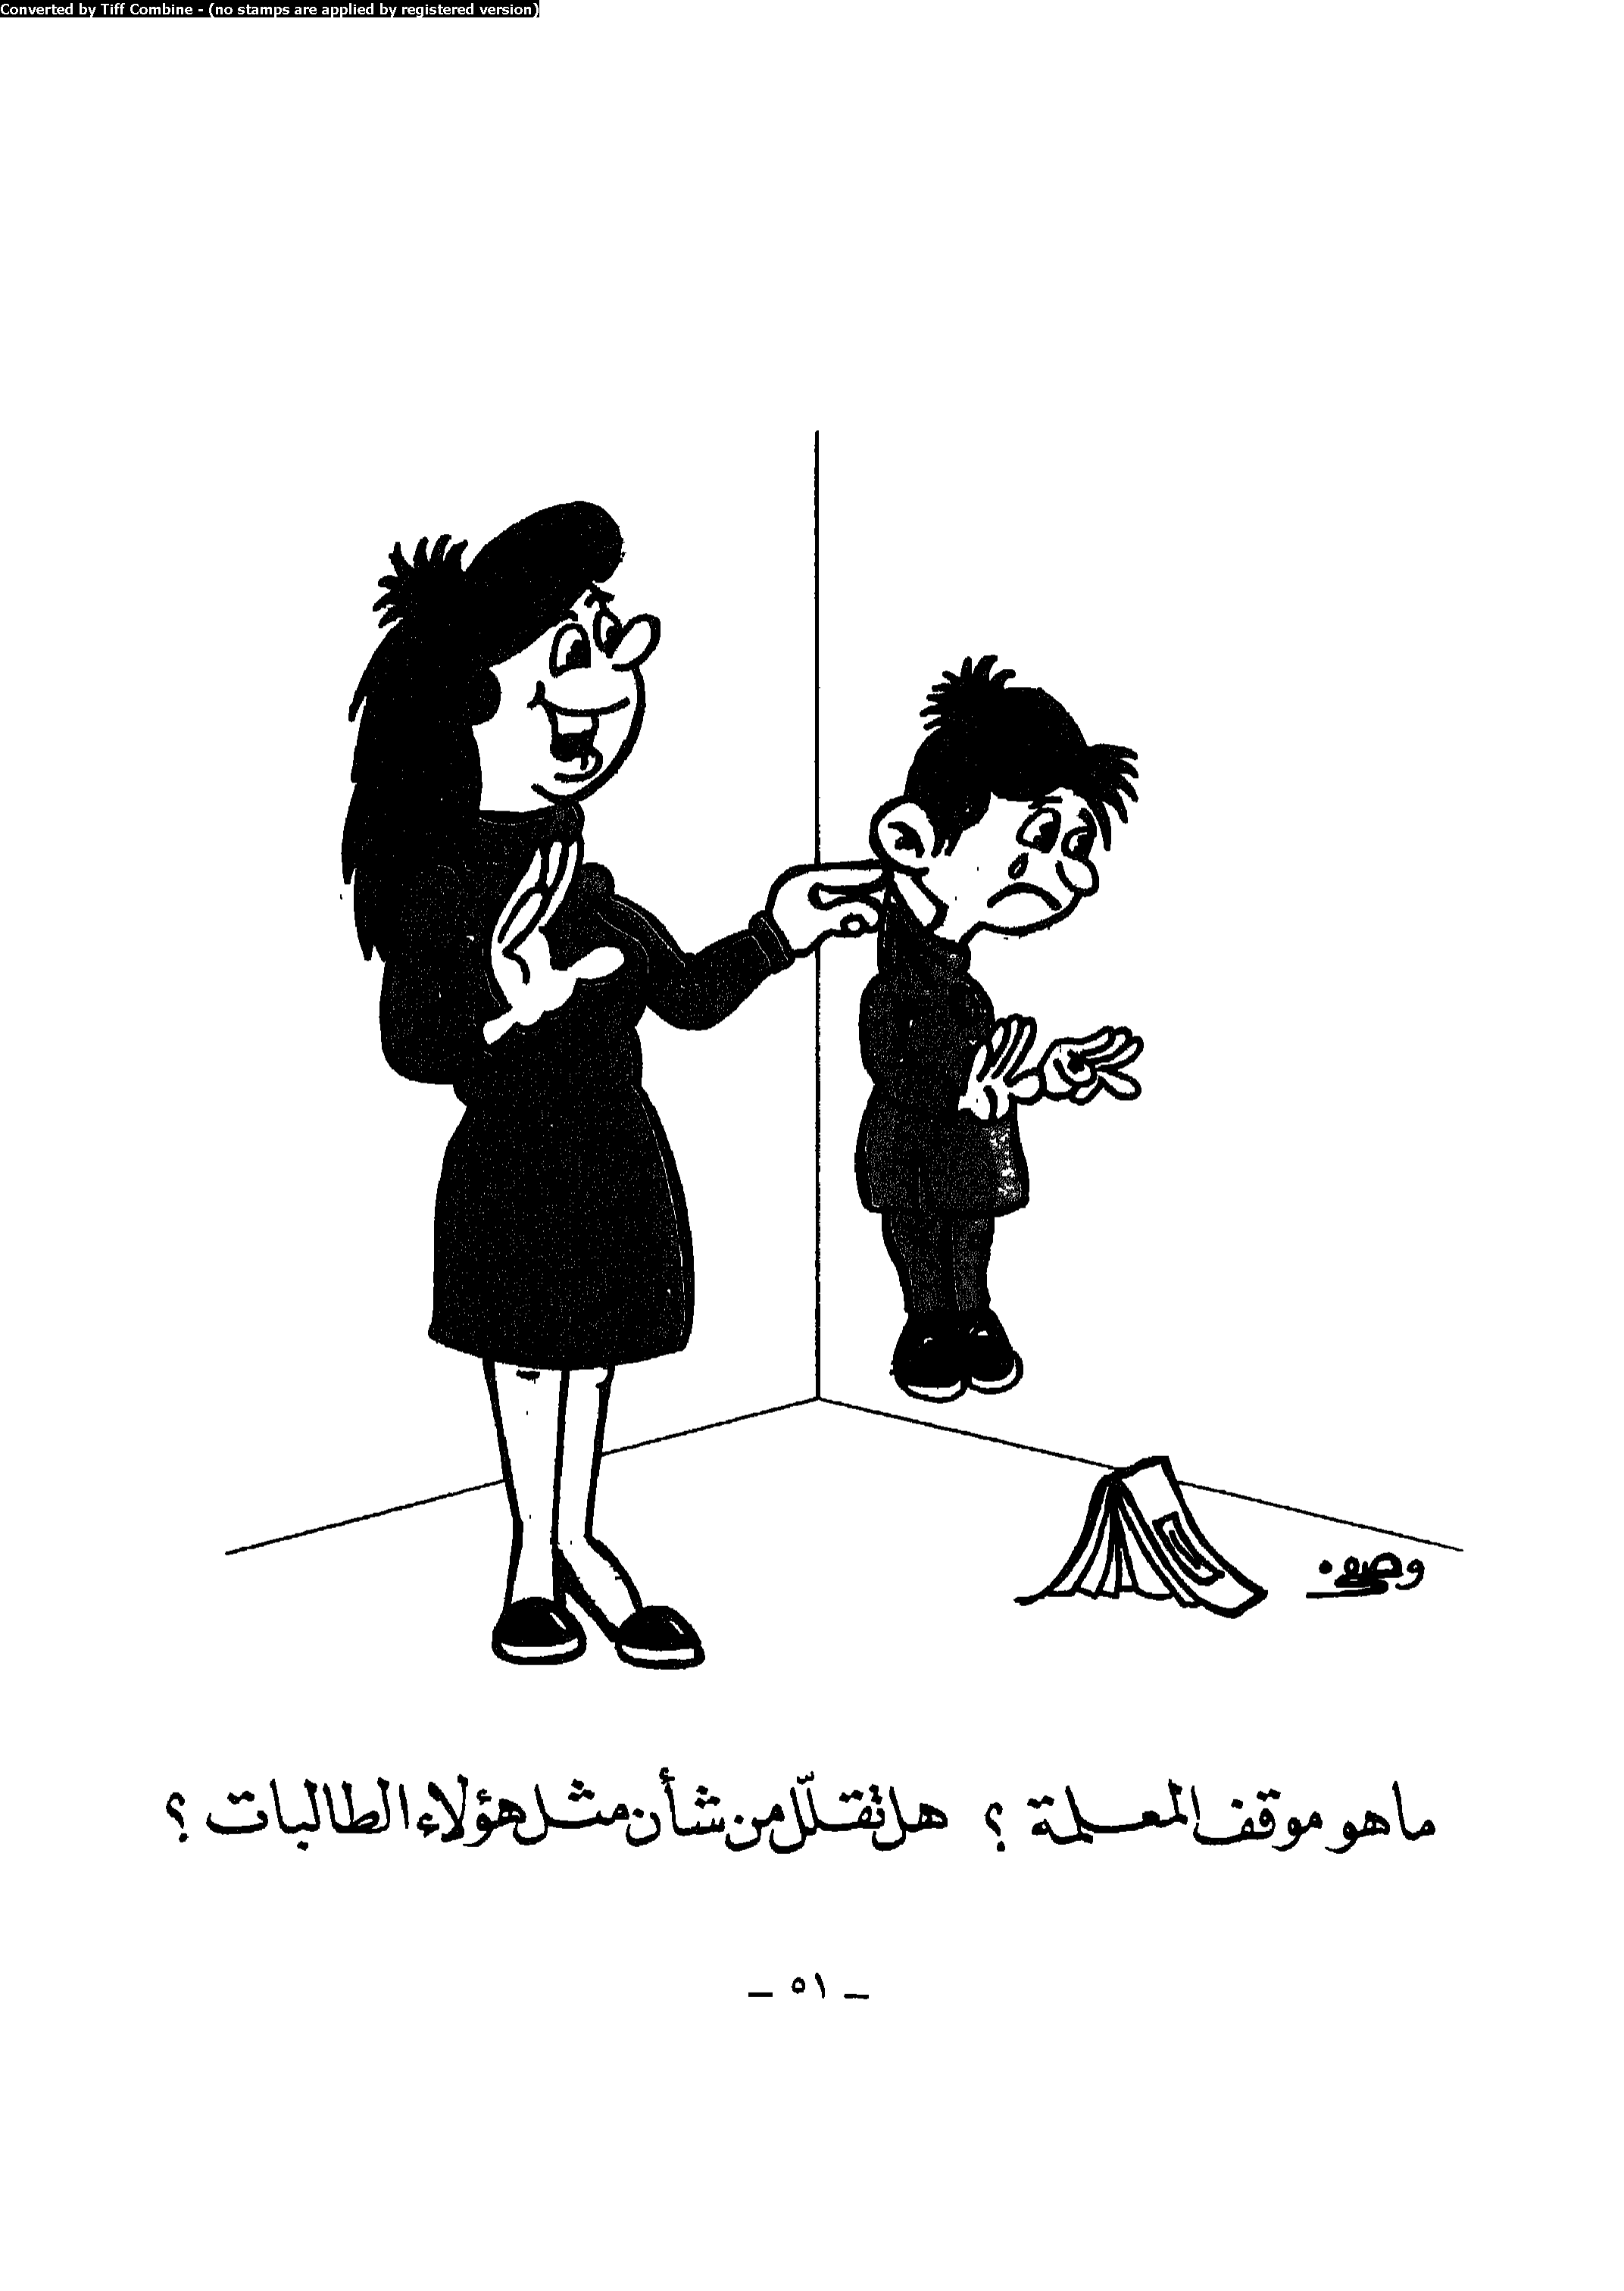 Converted by Tiff Combine - (no stamps are applied by registered version)
ما هو موقف المعلمة ؟ هل تقلّل من شأن مثل هؤلاء الطالبات ؟
_ ٥١ _